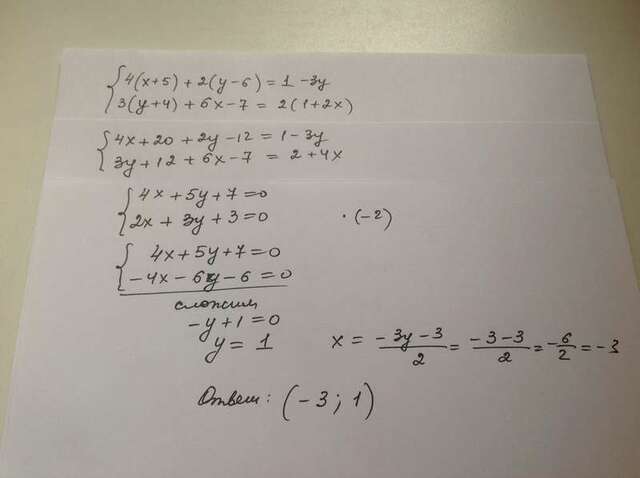 { 4(x+5) + 2(y-6) = 1 -3y
3(y+4) + 6x-7 = 2(1+2x)
{ 4x+20 + 2y-12 = 1-3y
3y+12 + 6x-7 = 2+4x
{ 4x+5y+7=0
2x + 3y+3=0 · (-2)
{ 4x+5y+7=0
-4x-6y-6=0
сложим
-y+1=0
y = 1 x = \frac{-3y-3}{2} = \frac{-3-3}{2} = -\frac{6}{2} = -3
Ответ: (-3; 1)